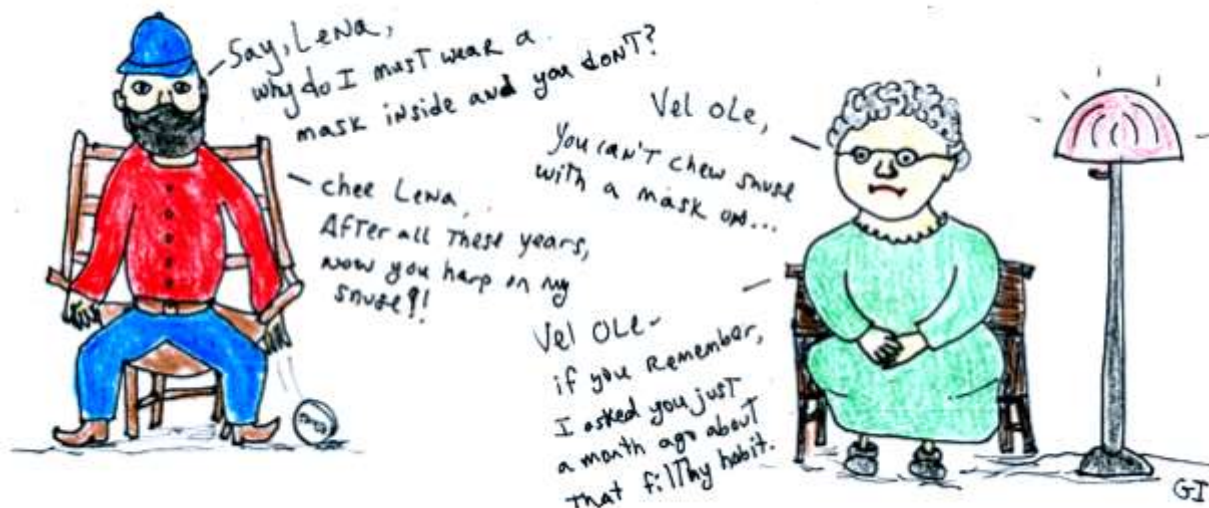 Say, LeNa,
why do I must wear a
mask inside and you donT?
Vel oLe,
You can't chew snuse
with a mask on...
chee LeNa,
After all These years,
now you harp on my
snuse?!
Vel OLe-
if you Remember,
I asked you just
a month ago about
That filThy habit.
GI